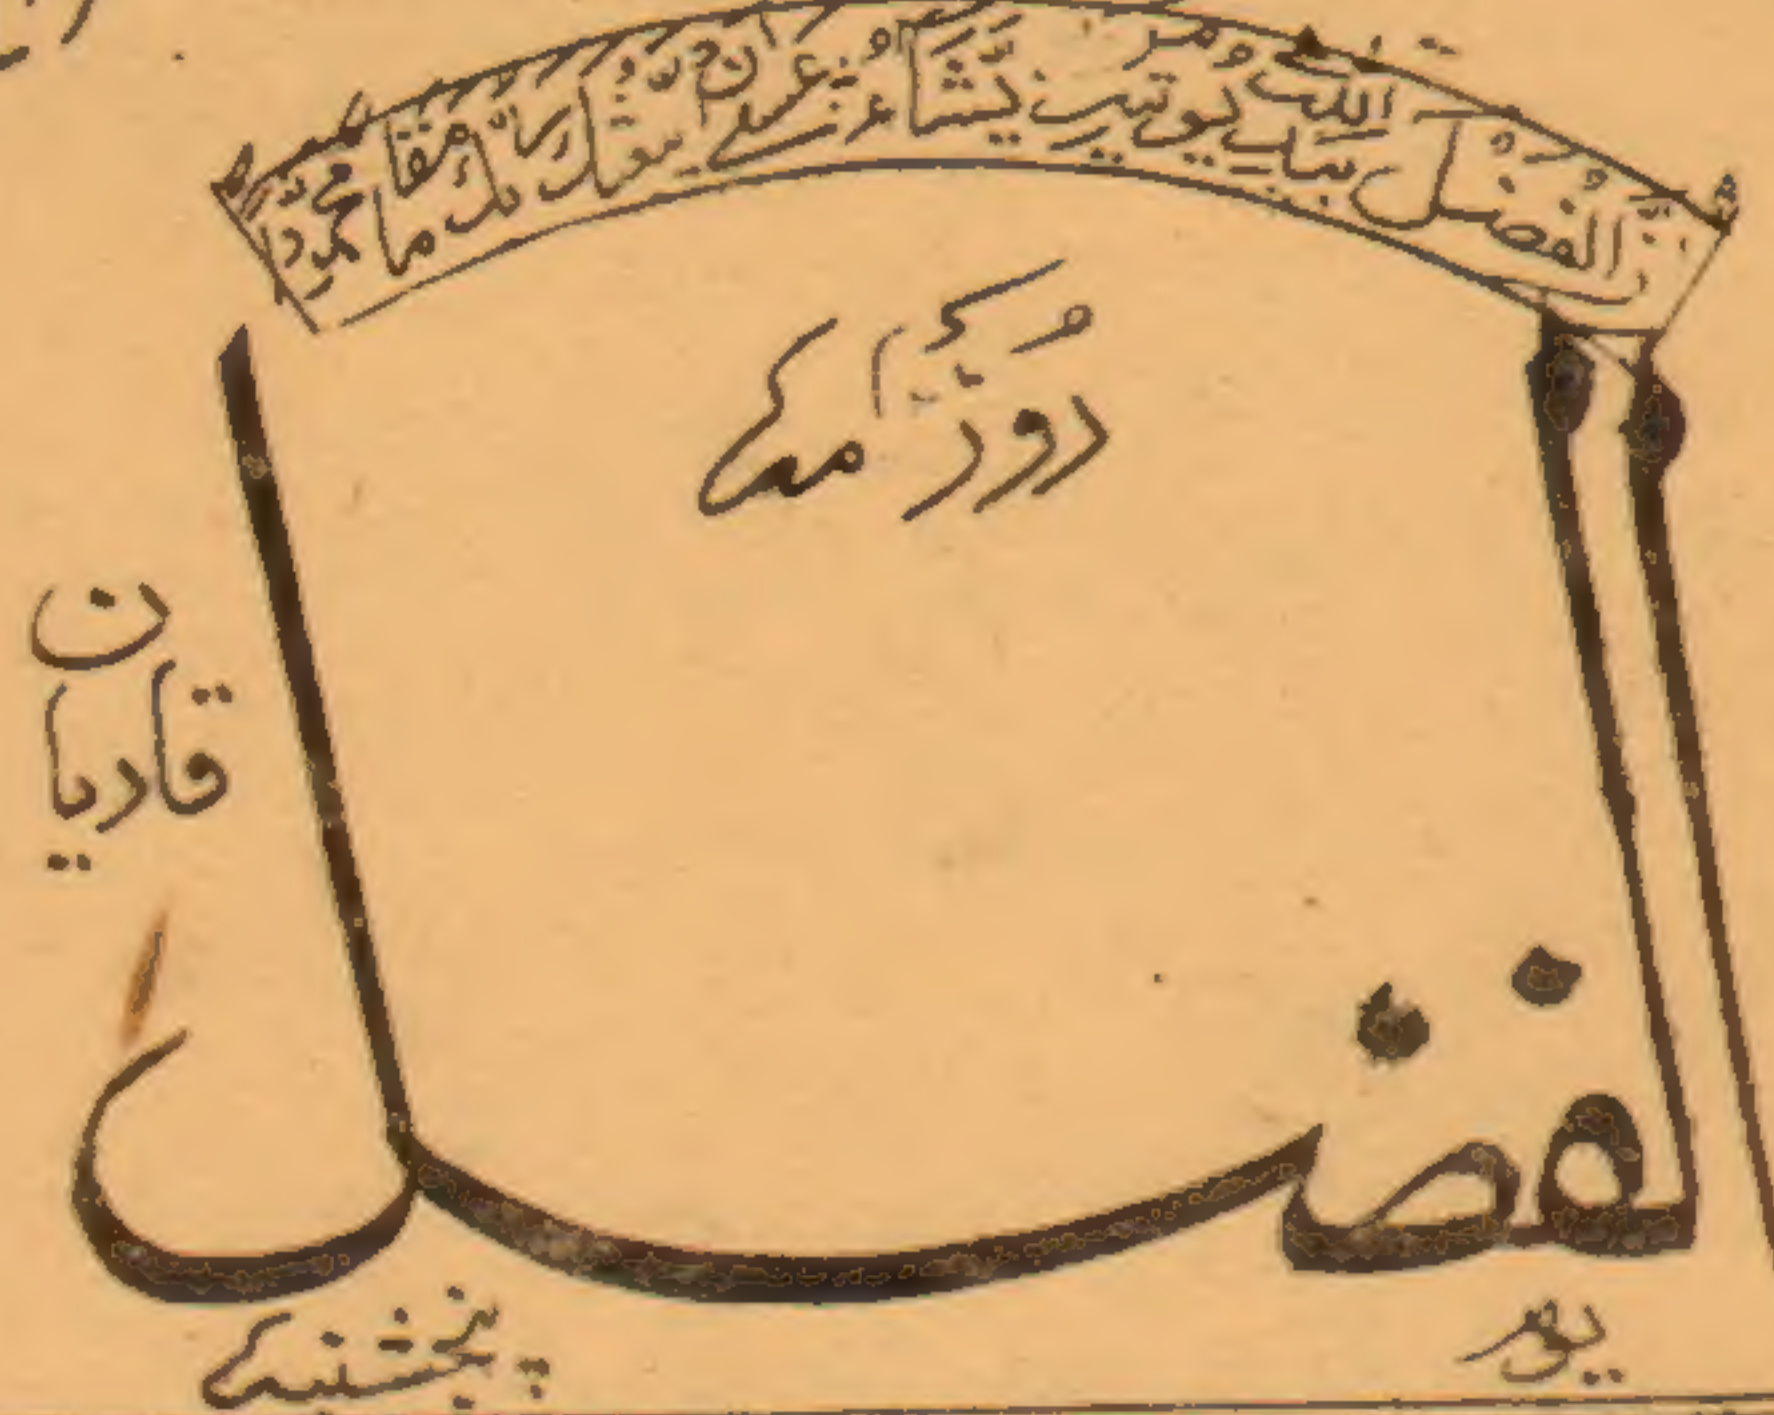 ان الفضل بيد الله يؤتيه من يشاء عسى ان يبعثك ربك مقاما محمودا
روزنامہ
الفضل
قادیان
یوم
پنجشنبہ